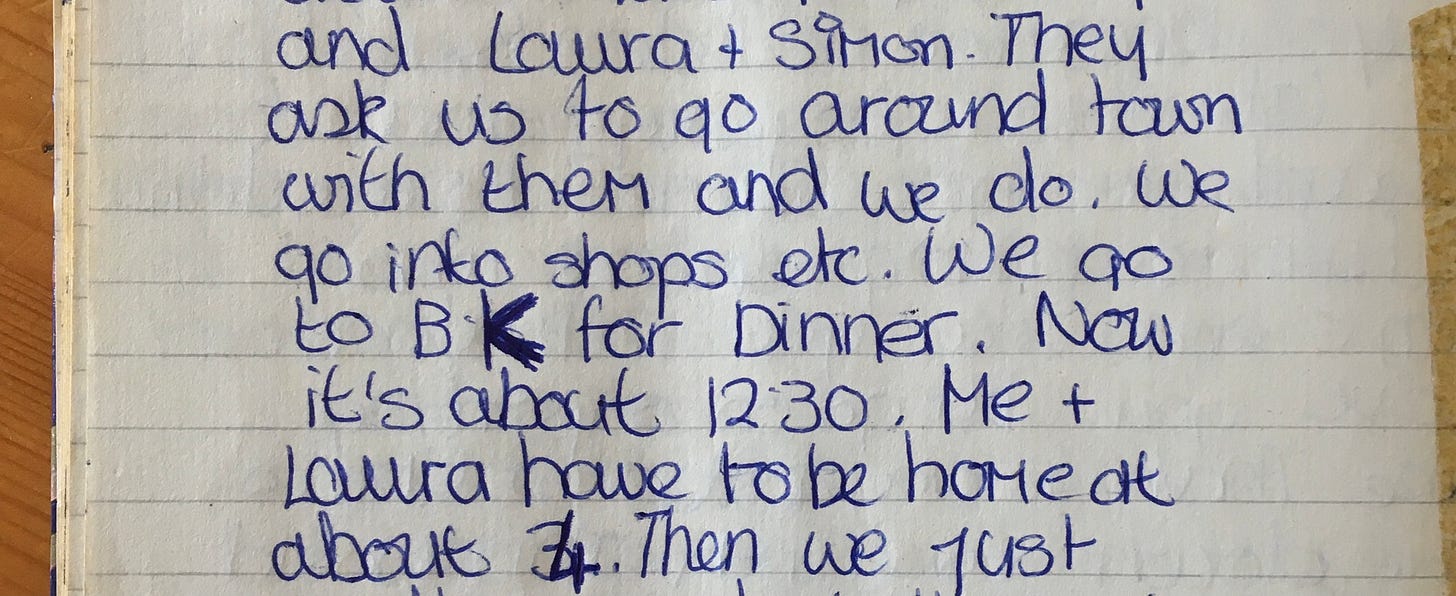 and Laura + Simon. They
ask us to go around town
with them and we do. We
go into shops etc. We go
to B.K for Dinner. Now
it's about 12.30. Me +
Laura have to be home at
about 4. Then we just